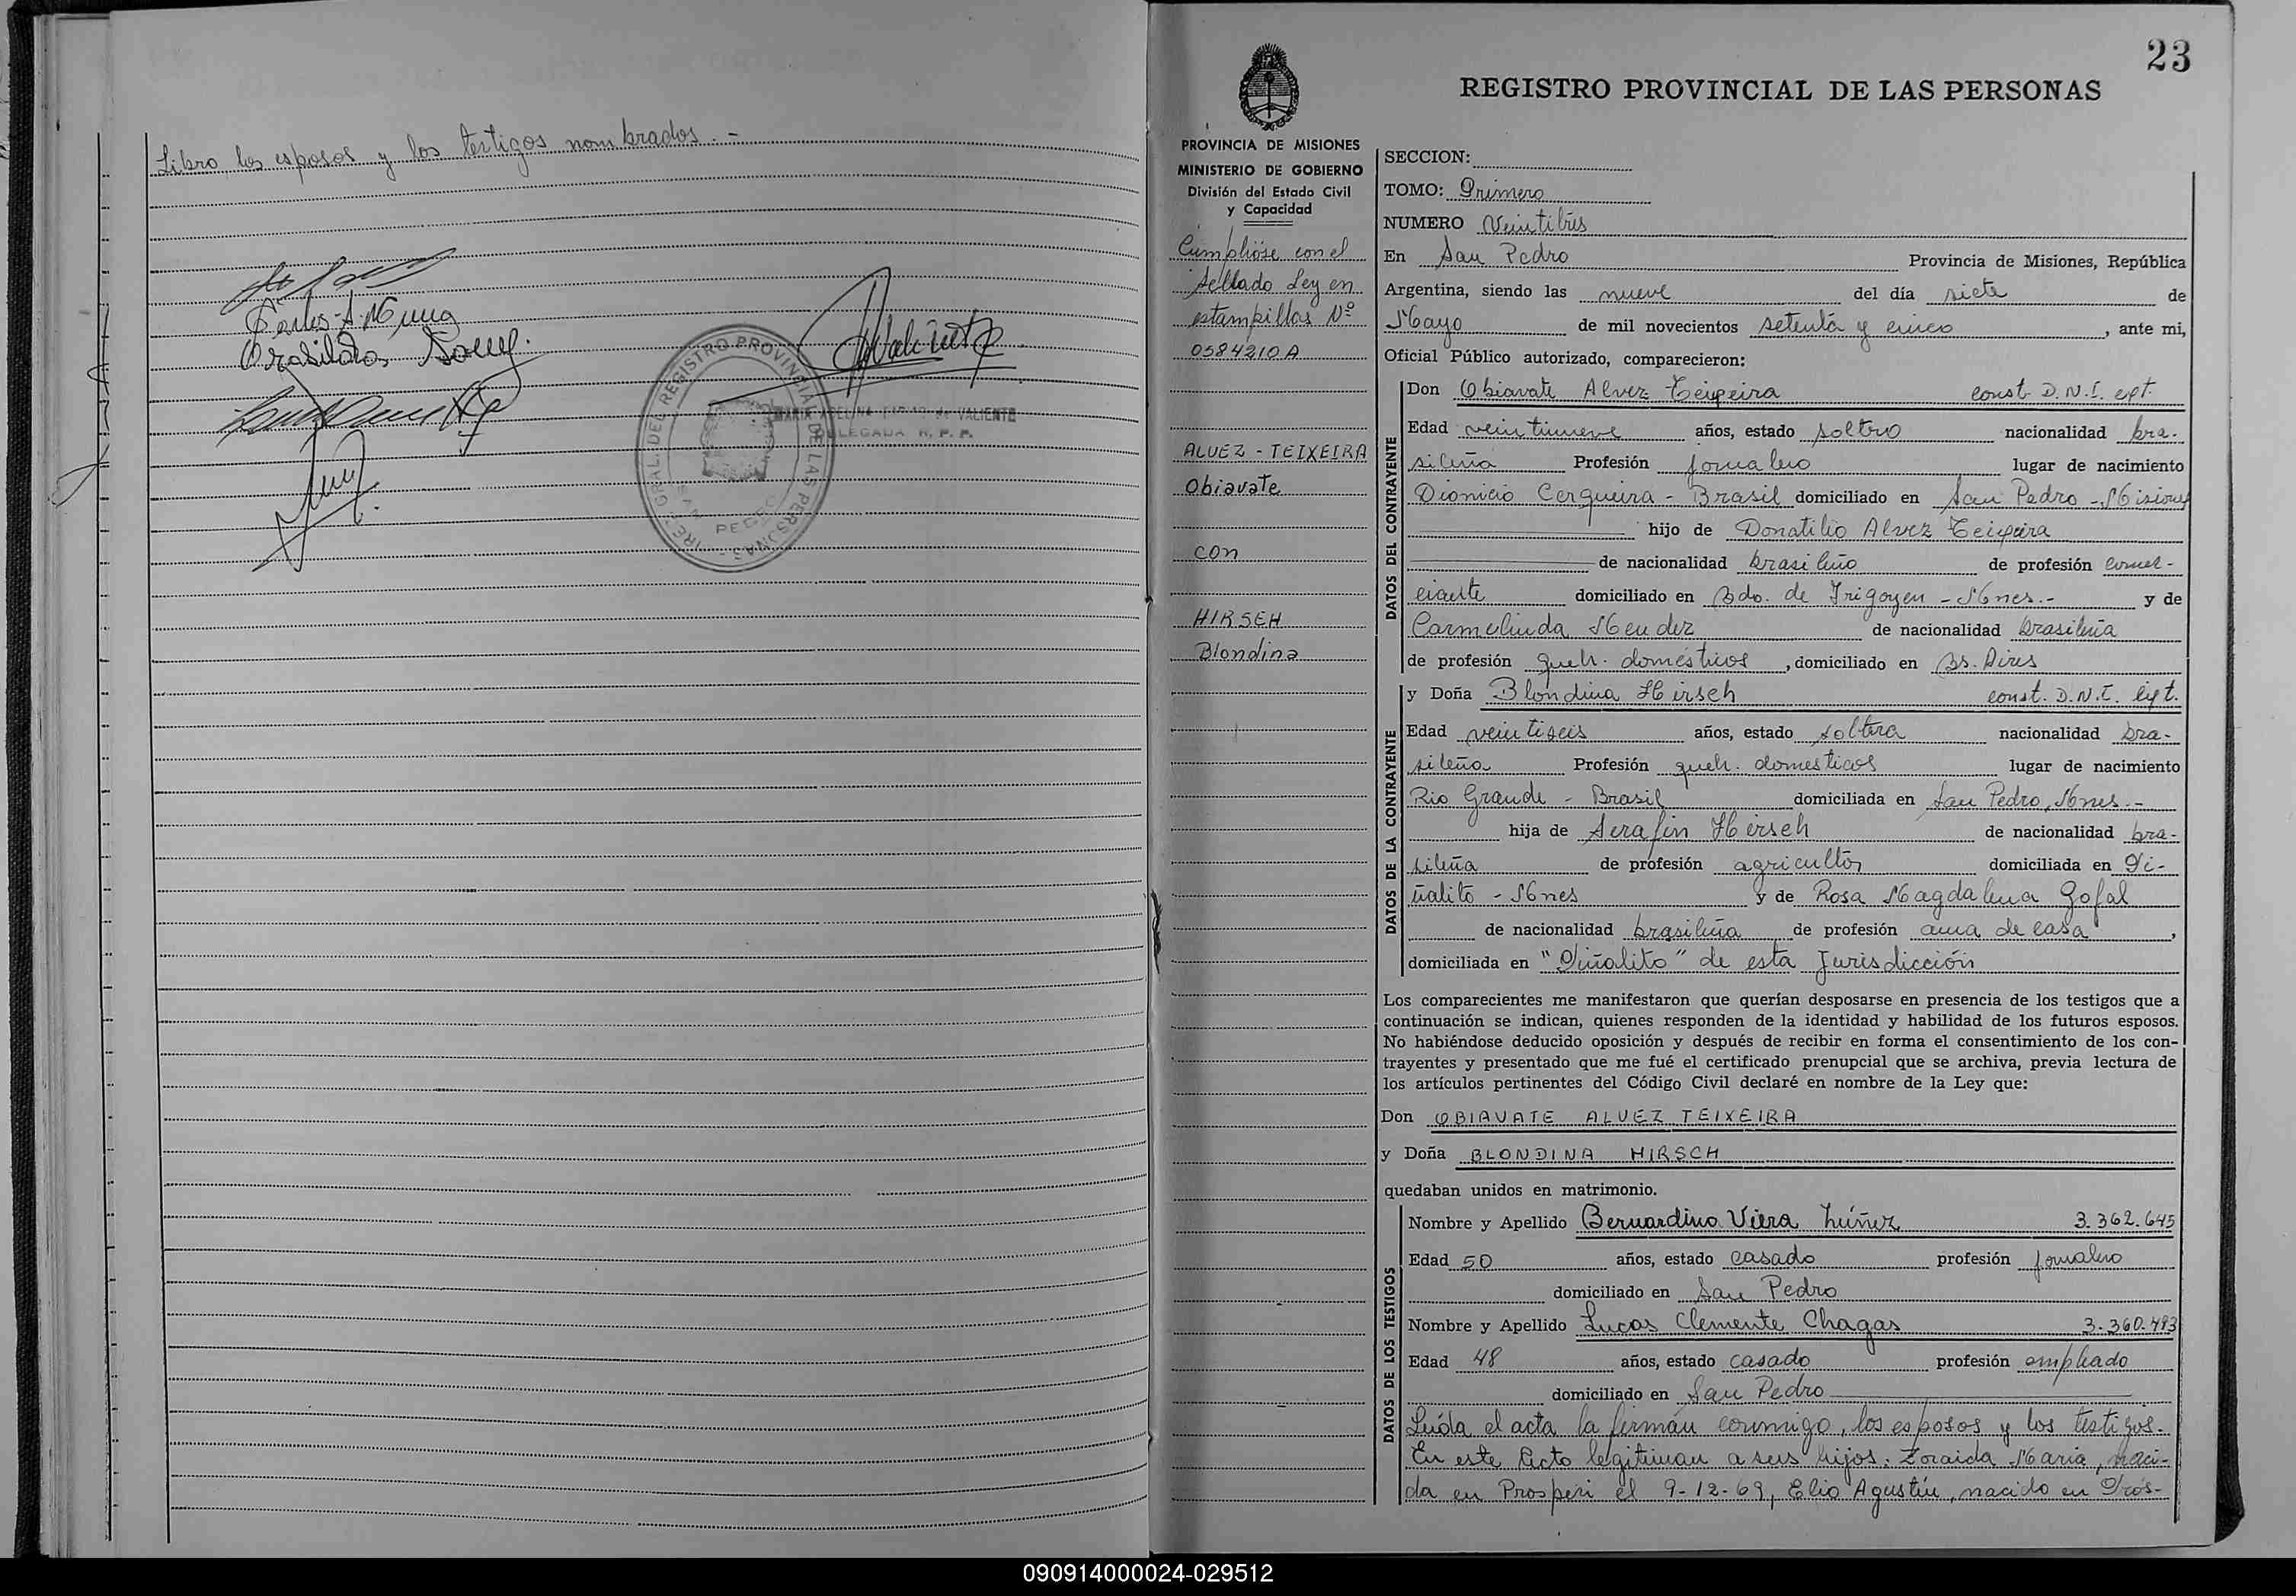 Libro, los esposos y los testigos nombrados.-
Carlos A.
DIREC. GRAL. DEL REGISTRO PROVINCIAL DE LAS PERSONAS
SAN PEDRO
de VALIENTE
DELEGADA R. P. P.
23
REGISTRO PROVINCIAL DE LAS PERSONAS
PROVINCIA DE MISIONES
MINISTERIO DE GOBIERNO
División del Estado Civil
y Capacidad
Cumplióse con el
Sellado Ley en
estampillas Nº
0584210 A
ALVEZ - TEIXEIRA
Obiavate
con
HIRSEH
Blondina
SECCION:
TOMO: Primero
NUMERO Veintitrés
En San Pedro Provincia de Misiones, República
Argentina, siendo las nueve del día siete de
Mayo de mil novecientos setenta y cinco, ante mi,
Oficial Público autorizado, comparecieron:
DATOS DEL CONTRAYENTE
Don Obiavate Alvez Teixeira const. D.N.I. ext.
Edad veintinueve años, estado soltero nacionalidad bra-
sileña Profesión jornalero lugar de nacimiento
Dionicio Cerqueira - Brasil domiciliado en San Pedro - Misiones
hijo de Donatilio Alvez Teixeira
de nacionalidad brasileño de profesión comer-
ciante domiciliado en Bdo. de Irigoyen - Mnes.- y de
Carmelinda Mendez de nacionalidad brasileña
de profesión queh. domésticos, domiciliado en Bs. Aires
DATOS DE LA CONTRAYENTE
y Doña Blondina Hirsch const. D.N.I. ext.
Edad veintiseis años, estado soltera nacionalidad bra-
sileña Profesión queh. domesticos lugar de nacimiento
Rio Grande - Brasil domiciliada en San Pedro, Mnes.-
hija de Serafin Hirsch de nacionalidad bra-
sileña de profesión agricultor domiciliada en Pi-
ñalito - Mnes y de Rosa Magdalena Gofal
de nacionalidad brasileña de profesión ama de casa,
domiciliada en "Piñalito" de esta Jurisdicción
Los comparecientes me manifestaron que querían desposarse en presencia de los testigos que a
continuación se indican, quienes responden de la identidad y habilidad de los futuros esposos.
No habiéndose deducido oposición y después de recibir en forma el consentimiento de los con-
trayentes y presentado que me fué el certificado prenupcial que se archiva, previa lectura de
los artículos pertinentes del Código Civil declaré en nombre de la Ley que:
Don OBIAVATE ALVEZ TEIXEIRA
y Doña BLONDINA HIRSCH
quedaban unidos en matrimonio.
DATOS DE LOS TESTIGOS
Nombre y Apellido Bernardino Viera Núñez 3.362.645
Edad 50 años, estado casado profesión jornalero
domiciliado en San Pedro
Nombre y Apellido Lucas Clemente Chagas 3.360.493
Edad 48 años, estado casado profesión empleado
domiciliado en San Pedro
Leída el acta la firman conmigo, los esposos y los testigos.
En este Acto legitiman a sus hijos: Zoraida Maria, naci-
da en Prosperi el 9-12-69, Elio Agustín, nacido en Prós-
090914000024-029512